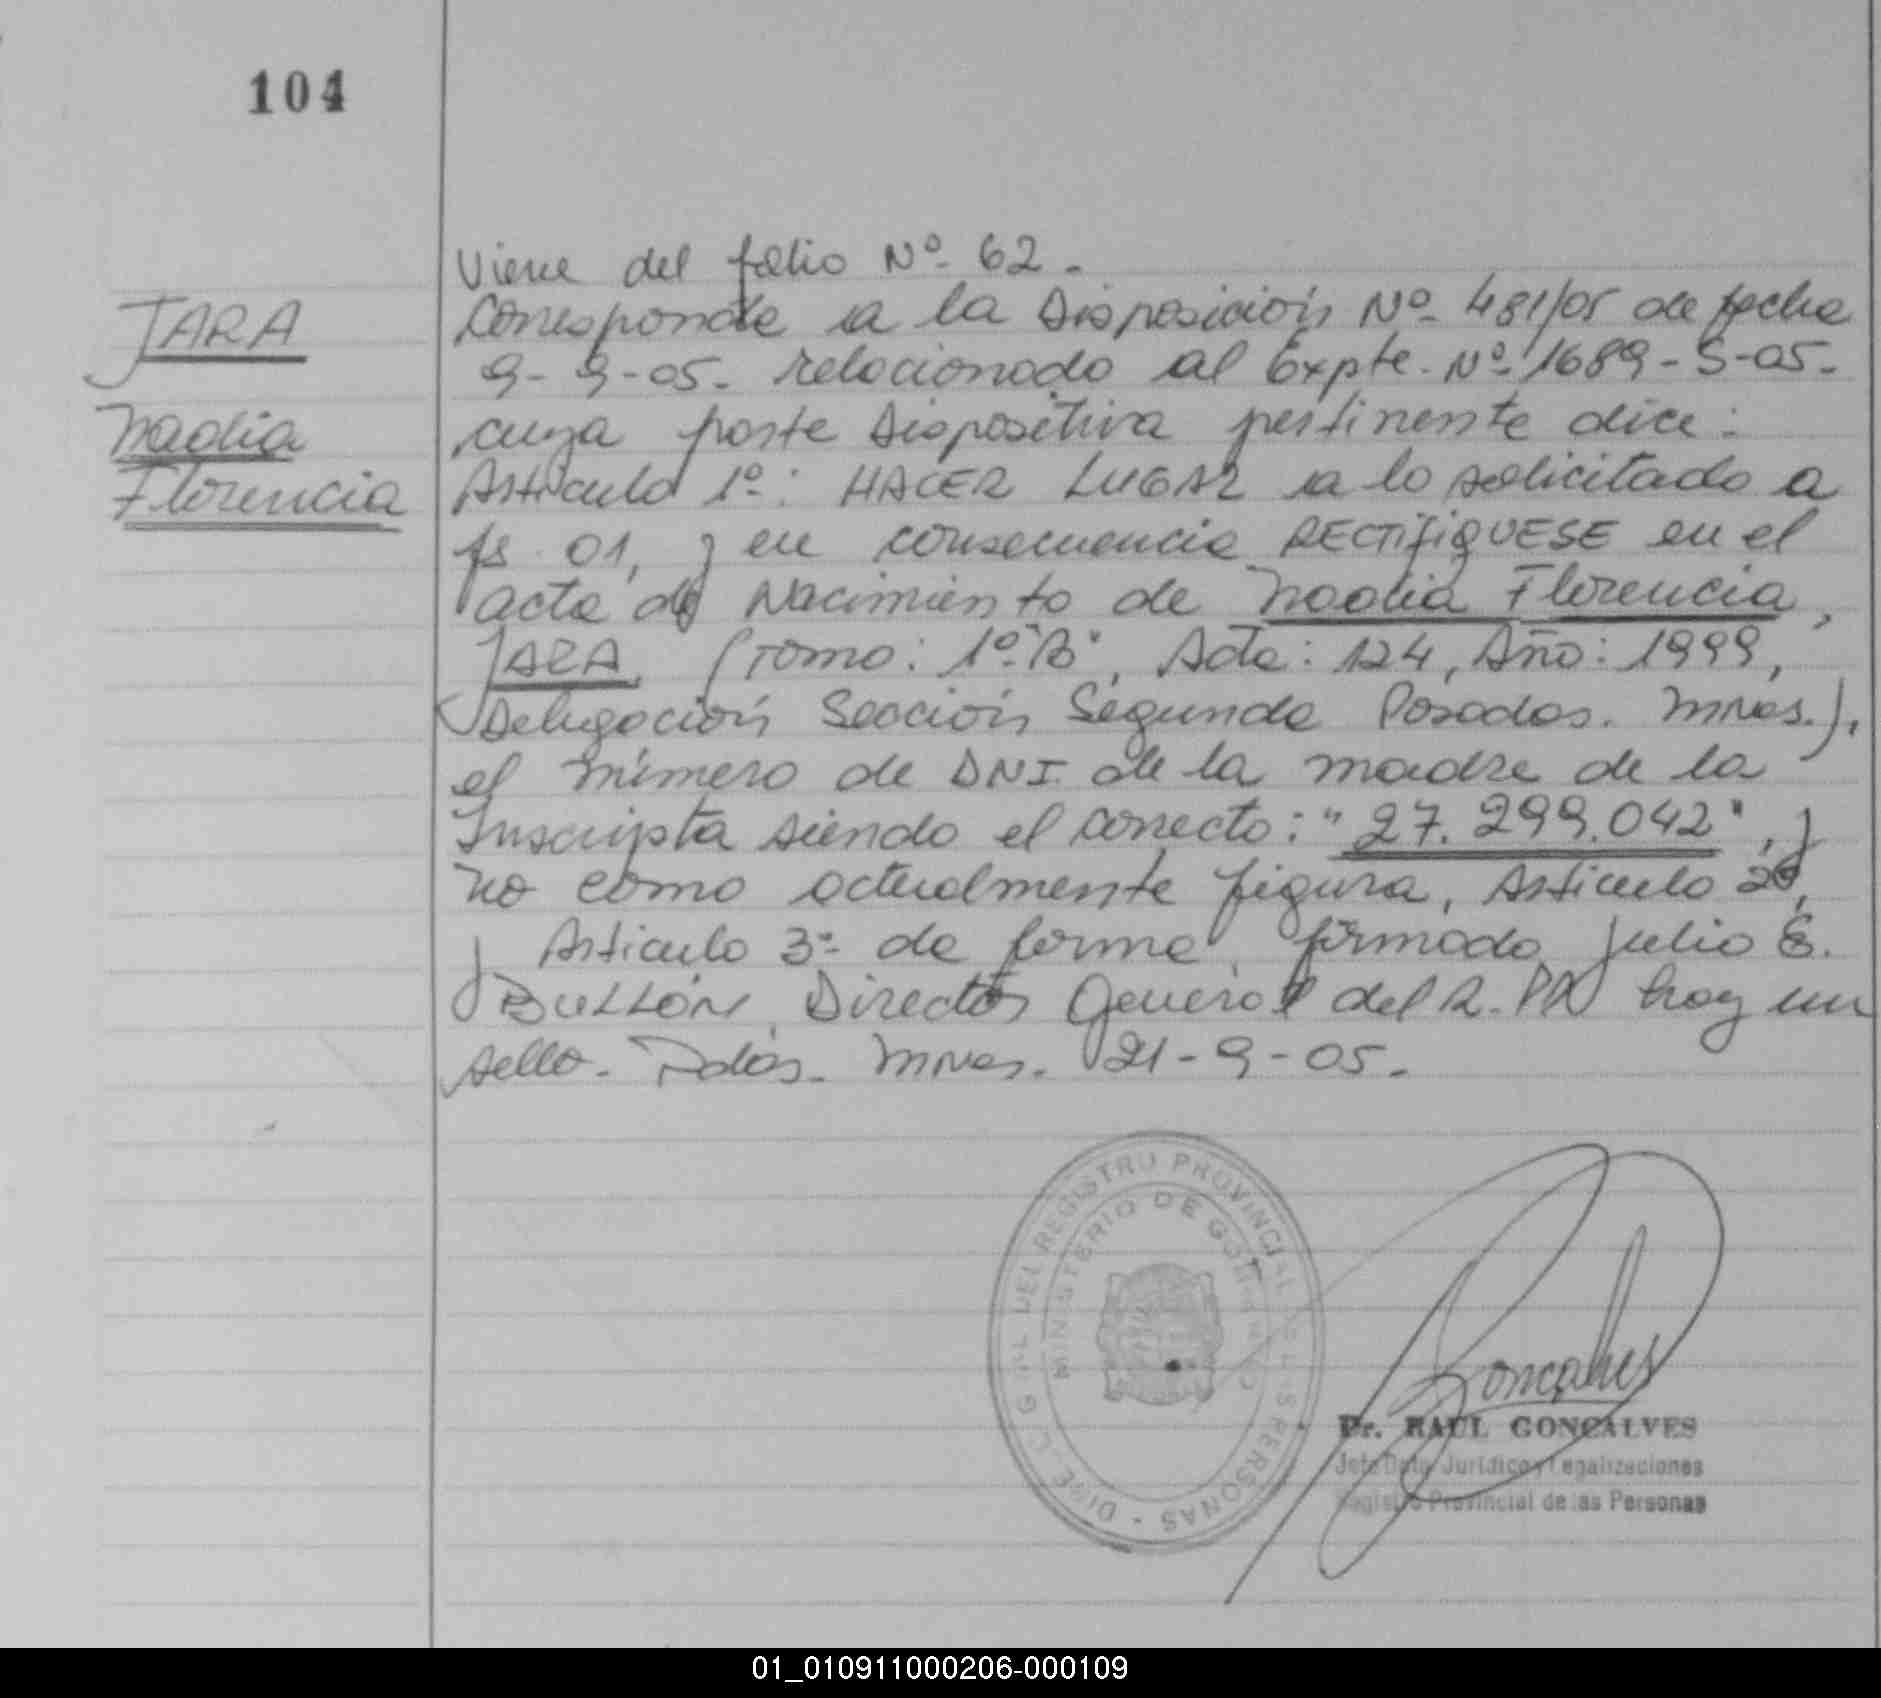 104
JARA
Nadia
Florencia
Viene del folio Nº 62.
Corresponde a la Disposición Nº 481/05 de fecha
9-9-05. relacionado al Expte. Nº 1689-S-05.
cuya parte Dispositiva pertinente dice:
Artículo 1º: HACER LUGAR a lo solicitado a
fs 01, y en consecuencia RECTIFIQUESE en el
acta de Nacimiento de Nadia Florencia,
JARA (Tomo: 1º "B", Acta: 124, Año: 1999,
Delegación Sección Segunda Posadas. Mnes.),
el número de DNI de la madre de la
Inscripta siendo el correcto: "27.299.042", y
no como actualmente figura, Artículo 2º,
y Artículo 3º de forma, firmado Julio E.
BULLÓN, Director General del R.PP hay un
sello. Pdas. Mnes. 21-9-05.
DIREC. GRAL DEL REGISTRO PROVINCIAL DE LAS PERSONAS -
MINISTERIO DE GOBIERNO
Goncalves
Dr. RAUL GONCALVES
Jefe Dpto. Jurídico y Legalizaciones
Registro Provincial de las Personas
01_010911000206-000109